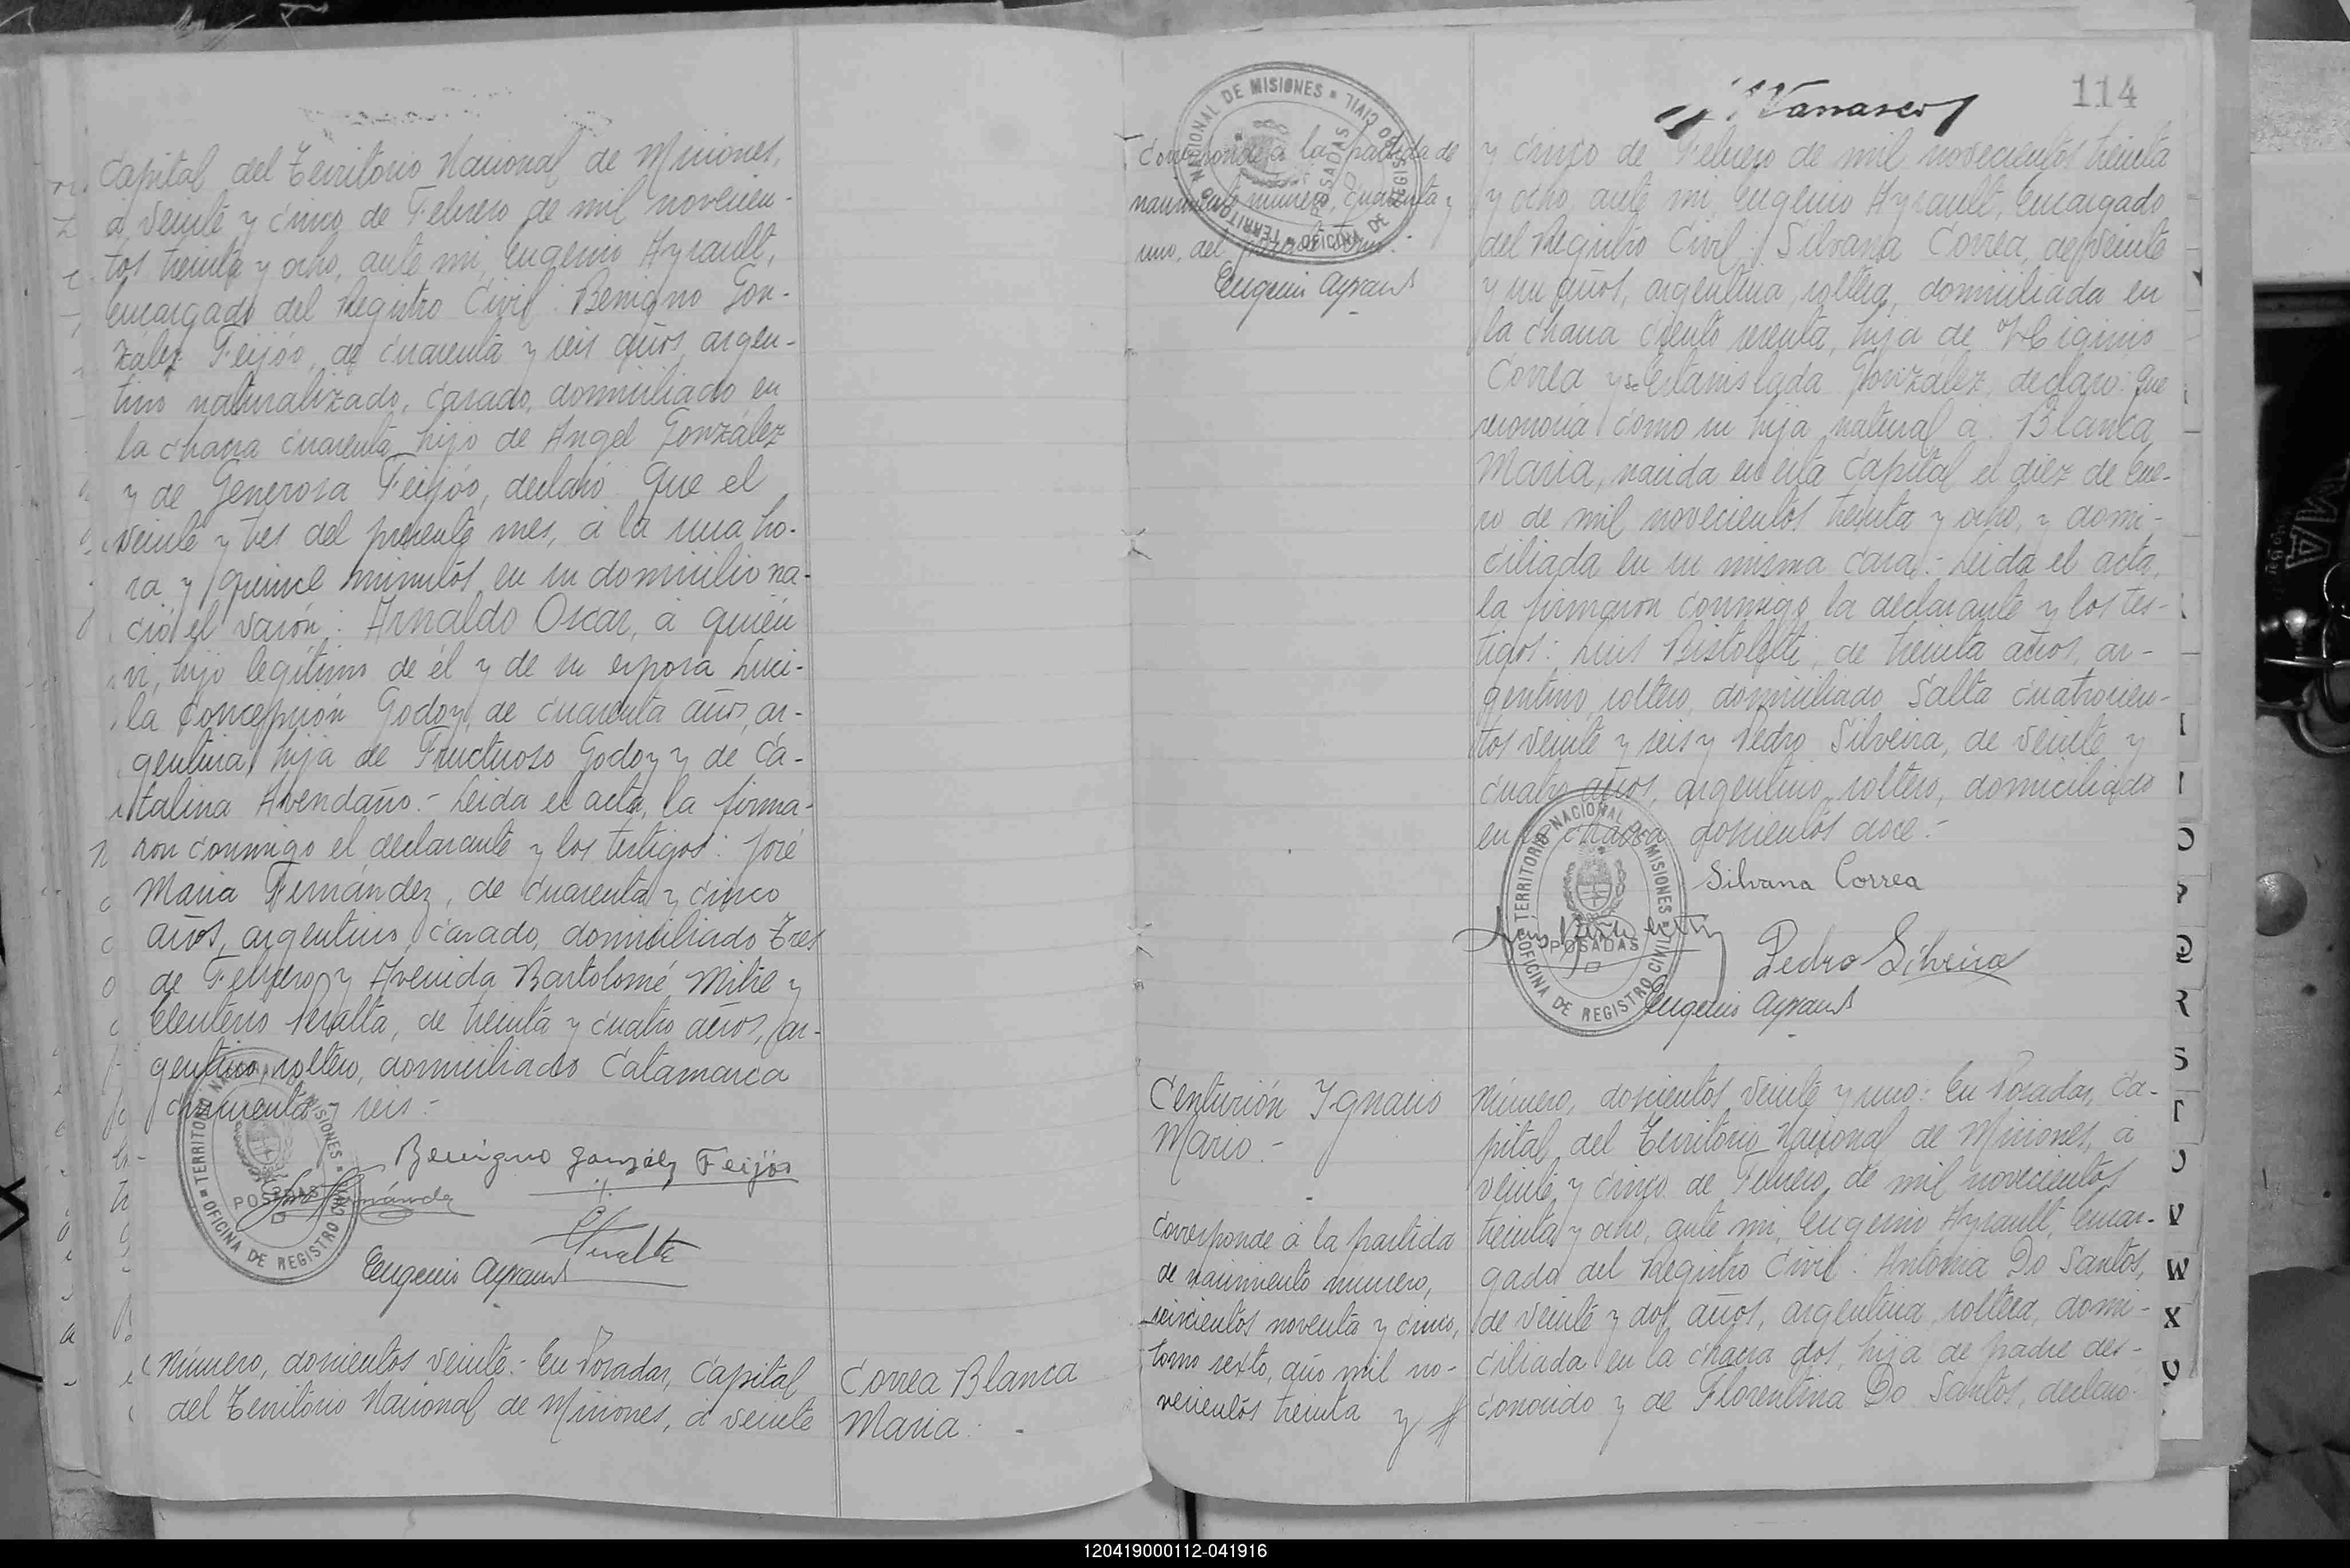 Capital del Territorio Nacional de Misiones,
á veinte y cinco de Febrero de mil novecien-
tos treinta y ocho, ante mi, Eugenio Ayrault,
Encargado del Registro Civil: Benigno Gon-
zález Feijóo, de cuarenta y seis años, argen-
tino naturalizado, casado, domiciliado en
la chacra cuarenta, hijo de Angel González
y de Generosa Feijóo, declaró: Que el
veinte y tres del presente mes, á la una ho-
ra y quince minutos, en su domicilio na-
ció el varón: Arnaldo Oscar, á quién
vi, hijo legítimo de él y de su esposa Luci-
la Concepción Godoy, de cuarenta años, ar-
gentina, hija de Fructuoso Godoy y de Ca-
talina Avendaño.- Leida el acta, la firma-
ron conmigo el declarante y los testigos: José
Maria Fernández, de cuarenta y cinco
años, argentino, casado, domiciliado Tres
de Febrero y Avenida Bartolomé Mitre y
Eleuterio Peralta, de treinta y cuatro años, ar-
gentino, soltero, domiciliado Catamarca
cincuenta y seis.-
Benigno González Feijóo
TERRITORIO NACIONAL DE MISIONES
POSADAS
OFICINA DE REGISTRO CIVIL
Fernández
Peralta
Eugenio Ayrault
Número, doscientos veinte.- En Posadas, Capital
del Territorio Nacional de Misiones, á veinte
Correa Blanca
Maria.-
114
TERRITORIO NACIONAL DE MISIONES
POSADAS
OFICINA DE REGISTRO CIVIL
Corresponde á la partida de
nacimiento número, cuarenta y
uno, del presente tomo.-
Eugenio Ayrault
y cinco de Febrero de mil novecientos treinta
y ocho, ante mi, Eugenio Ayrault, Encargado
del Registro Civil: Silvana Correa, de veinte
y un años, argentina, soltera, domiciliada en
la chacra ciento sesenta, hija de Higinio
Correa y de Estanislada González, declaró: Que
reconocia como su hija natural á: Blanca
Maria, nacida en esta Capital el diez de Ene-
ro de mil novecientos treinta y ocho, y domi-
ciliada en su misma casa.- Leida el acta,
la firmaron conmigo la declarante y los tes-
tigos: Luis Bistoletti, de treinta años, ar-
gentino, soltero, domiciliado Salta cuatrocien-
tos veinte y seis y Pedro Silveira, de veinte y
cuatro años, argentino, soltero, domiciliado
en la chacra doscientos doce.-
Silvana Correa
TERRITORIO NACIONAL DE MISIONES
POSADAS
OFICINA DE REGISTRO CIVIL
Pedro Silveira
Eugenio Ayrault
Centurión Ignacio
Mario.-
Corresponde á la partida
de nacimiento número,
seiscientos noventa y cinco,
tomo sexto, año mil no-
vecientos treinta y
Número, doscientos veinte y uno: En Posadas, Ca-
pital del Territorio Nacional de Misiones, á
veinte y cinco de Febrero de mil novecientos
treinta y ocho, ante mi, Eugenio Ayrault, Encar-
gado del Registro Civil: Antonia Do Santos,
de veinte y dos años, argentina, soltera, domi-
ciliada en la chacra dos, hija de padre des-
conocido y de Florentina Do Santos, declaró:
Q
R
S
V
W
X
120419000112-041916